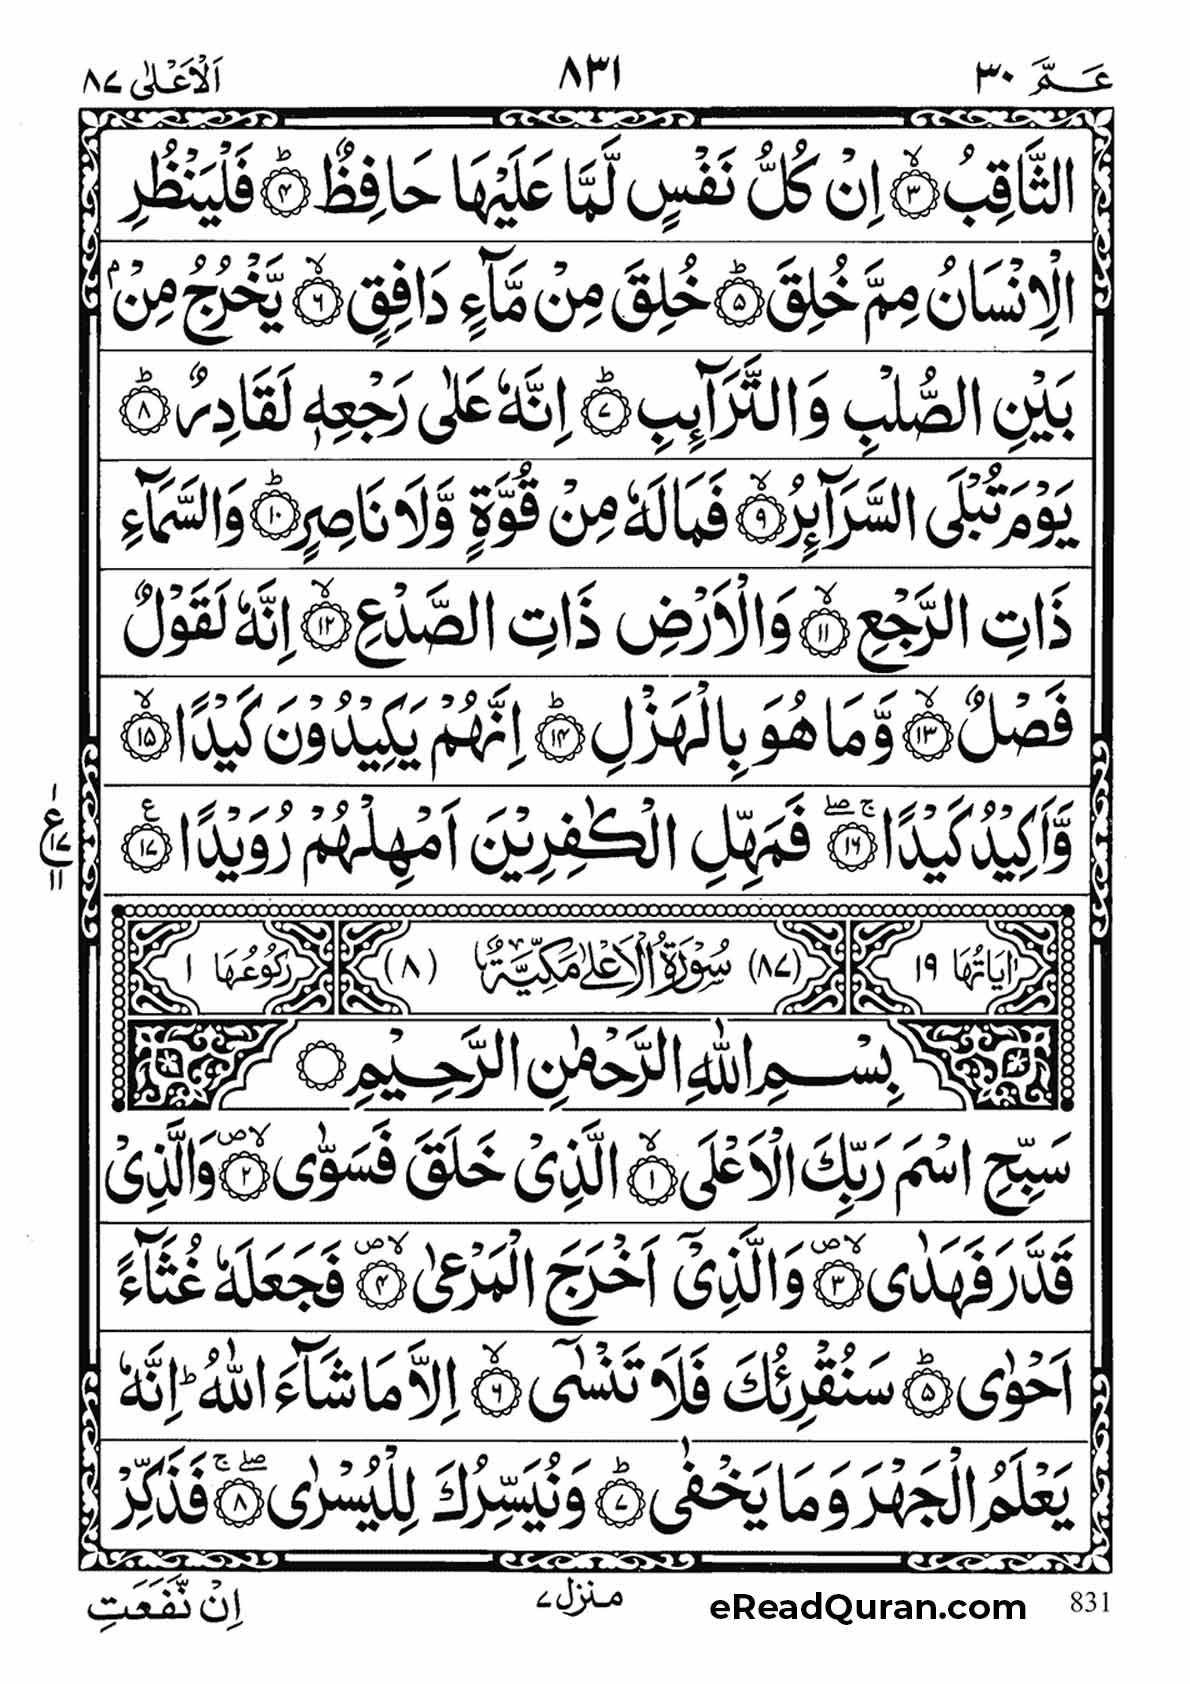 عَمَّ ٣٠
٨٣١
اَلْاَعْلٰى ٨٧
الثَّاقِبُ ۙ‏﴿٣﴾ اِنْ كُلُّ نَفْسٍ لَّمَّا عَلَيْهَا حَافِظٌ ؕ‏﴿٤﴾ فَلْيَنْظُرِ
الْاِنْسَانُ مِمَّ خُلِقَ ؕ‏﴿٥﴾ خُلِقَ مِنْ مَّآءٍ دَافِقٍ ۙ‏﴿٦﴾ يَّخْرُجُ مِنْۢ
بَيْنِ الصُّلْبِ وَالتَّرَآئِبِ ؕ‏﴿٧﴾ اِنَّهٗ عَلٰى رَجْعِهٖ لَقَادِرٌ ؕ‏﴿٨﴾
يَوْمَ تُبْلَى السَّرَآئِرُ ۙ‏﴿٩﴾ فَمَا لَهٗ مِنْ قُوَّةٍ وَّلَا نَاصِرٍ ؕ‏﴿١٠﴾ وَالسَّمَآءِ
ذَاتِ الرَّجْعِ ۙ‏﴿١١﴾ وَالْاَرْضِ ذَاتِ الصَّدْعِ ۙ‏﴿١٢﴾ اِنَّهٗ لَقَوْلٌ
فَصْلٌ ۙ‏﴿١٣﴾ وَّمَا هُوَ بِالْهَزْلِ ؕ‏﴿١٤﴾ اِنَّهُمْ يَكِيْدُوْنَ كَيْدًا ۙ‏﴿١٥﴾
وَّاَكِيْدُ كَيْدًا ۚۖ‏﴿١٦﴾ فَمَهِّلِ الْكٰفِرِيْنَ اَمْهِلْهُمْ رُوَيْدًا ع‏﴿١٧﴾
١ ع ١٧ ١١
اٰيَاتُهَا ١٩ (٨٧) سُوْرَةُ الْاَعْلٰى مَكِّيَّةٌ (٨) رُكُوْعُهَا ١
بِسْمِ اللّٰهِ الرَّحْمٰنِ الرَّحِيْمِ ۝
سَبِّحِ اسْمَ رَبِّكَ الْاَعْلَى ۙ‏﴿١﴾ الَّذِىْ خَلَقَ فَسَوّٰى ۙ ص‏﴿٢﴾ وَالَّذِىْ
قَدَّرَ فَهَدٰى ۙ ص‏﴿٣﴾ وَالَّذِىْٓ اَخْرَجَ الْمَرْعٰى ۙ ص‏﴿٤﴾ فَجَعَلَهٗ غُثَآءً
اَحْوٰى ؕ‏﴿٥﴾ سَنُقْرِئُكَ فَلَا تَنْسٰٓى ۙ‏﴿٦﴾ اِلَّا مَا شَآءَ اللّٰهُ ؕ اِنَّهٗ
يَعْلَمُ الْجَهْرَ وَمَا يَخْفٰى ؕ‏﴿٧﴾ وَنُيَسِّرُكَ لِلْيُسْرٰى ۚۖ‏﴿٨﴾ فَذَكِّرْ
اِنْ نَّفَعَتِ
منزل ٧
eReadQuran.com
831